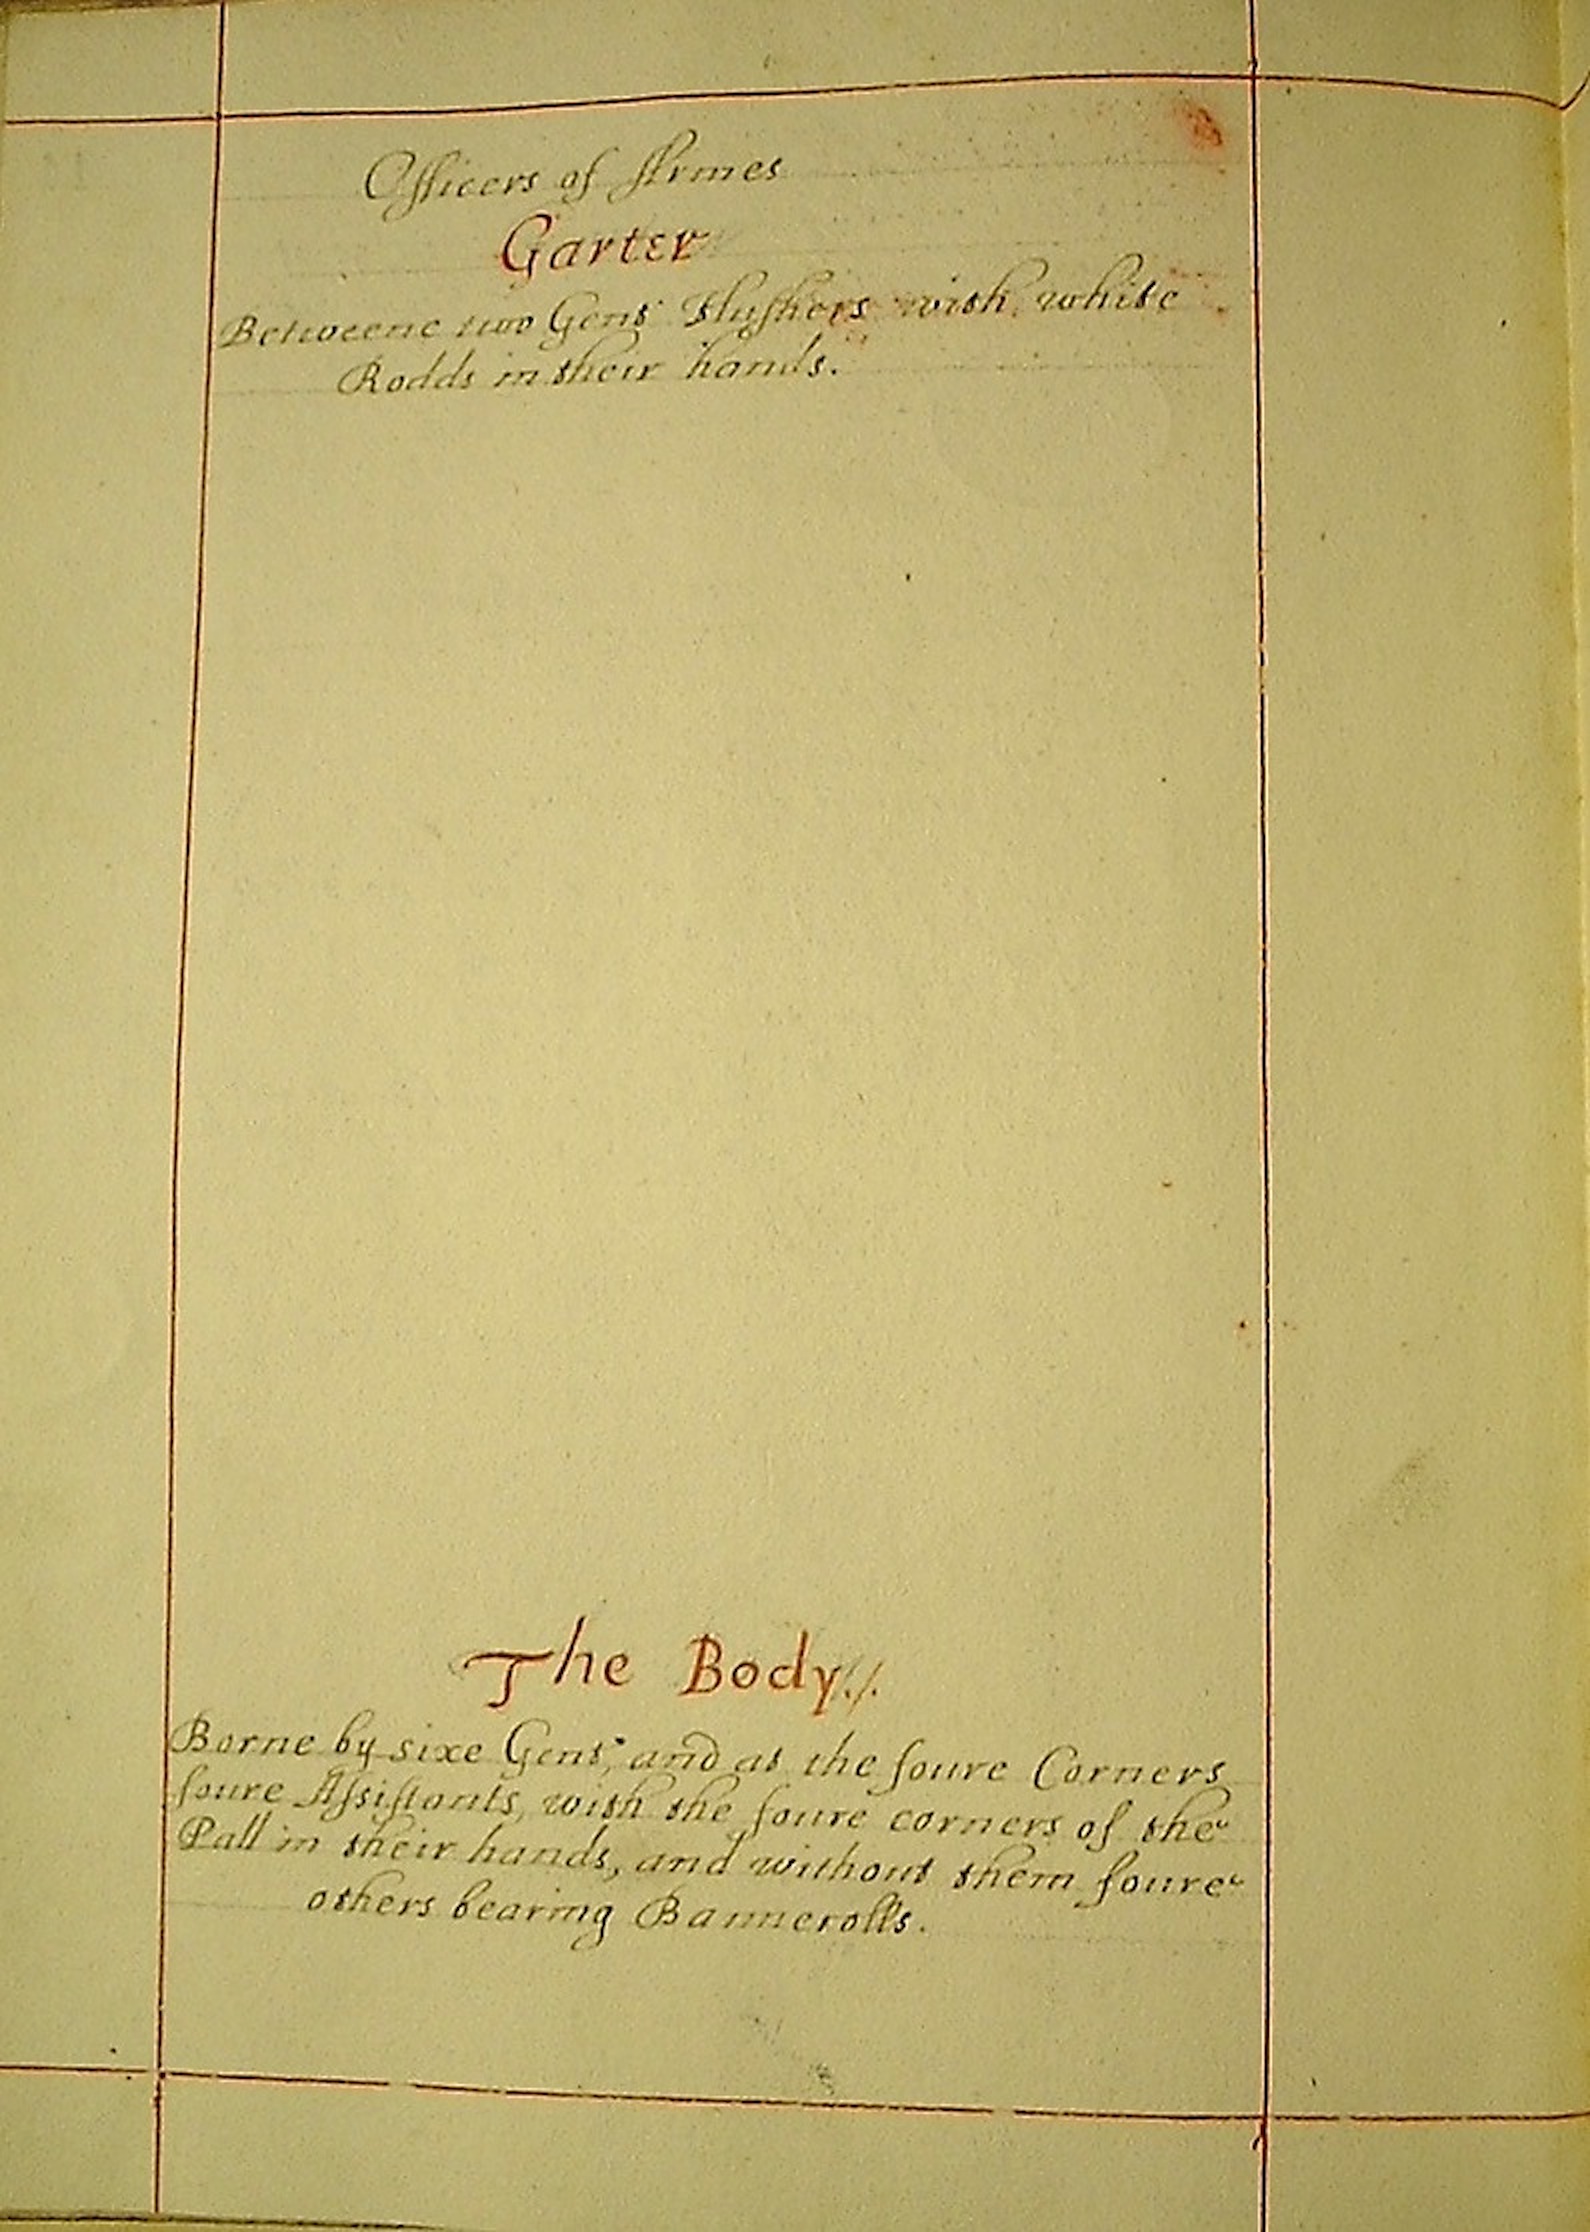 Officers of Armes
Garter
Betweene two Gent Hushers with white
Rodds in their hands.
The Body./.
Borne by sixe Gent, and at the foure Corners
foure Assistants, with the foure corners of the
Pall in their hands, and without them foure
others bearing Bannerolls.